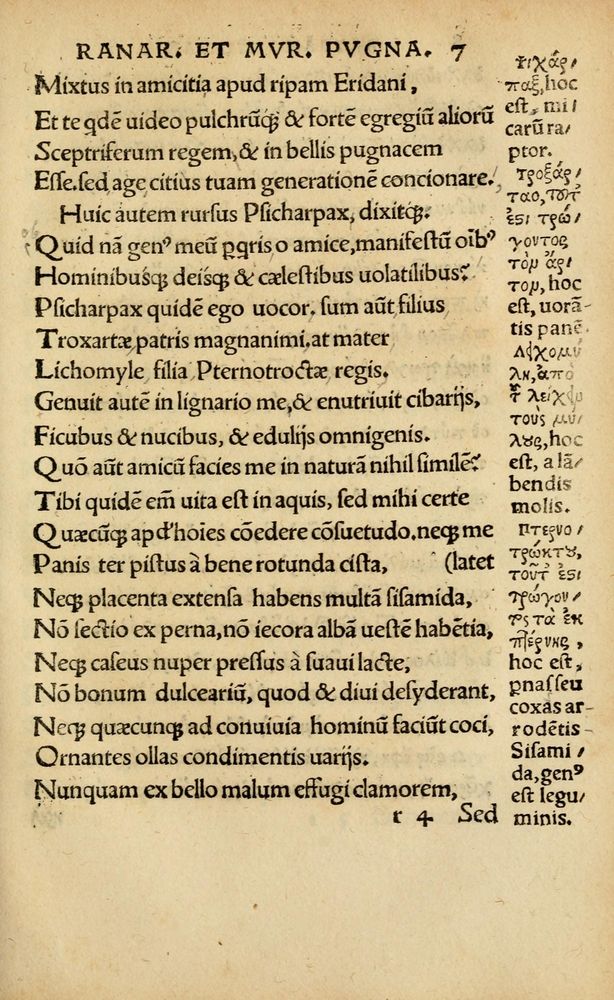 RANAR. ET MVR. PVGNA. 7
Mixtus in amicitia apud ripam Eridani,
Et te qdē uideo pulchrūq; & fortē egregiū aliorū
Sceptriferum regem, & in bellis pugnacem
Esse. sed age citius tuam generationē concionare.
Huic autem rursus Psicharpax, dixitq;.
Quid nā genꝰ meū pqris o amice, manifestū oibꝰ
Hominibusq; deisq; & cælestibus uolatilibus?
Psicharpax quidē ego uocor. sum aūt filius
Troxartæ patris magnanimi, at mater
Lichomyle filia Pternotroctæ regis.
Genuit autē in lignario me, & enutriuit cibarijs,
Ficubus & nucibus, & edulijs omnigenis.
Quō aūt amicū facies me in naturā nihil similē?
Tibi quidē em̄ uita est in aquis, sed mihi certe
Quæcūq; apd' hoīes cōedere cōsuetudo. neq; me
Panis ter pistus à bene rotunda cista, (latet
Neq; placenta extensa habens multā sisamida,
Nō sectio ex perna, nō iecora albā uestē habētia,
Neq; caseus nuper pressus à suaui lacte,
Nō bonum dulceariū, quod & diui desyderant,
Neq; quæcunq; ad conuiuia hominū faciūt coci,
Ornantes ollas condimentis uarijs.
Nunquam ex bello malum effugi clamorem,
r 4 Sed
ψιχάρ/
παξ, hoc
est, mi/
carū ra/
ptor.
τροξάρ/
ταο, τουτ
έςι τρώ/
γοντος
τὸμ ἄρ/
τομ, hoc
est, uorā-
tis panē.
λειχομύ/
λη, ἀπὸ
τ λείχειν
τοὺς μύ/
λους, hoc
est, a lā/
bendis
molis.
πτερνο/
τρώκτου,
τοῦτ έςι
τρώγον/
τος τὰ ἐκ
πτέρνης,
hoc est,
pnas seu
coxas ar-
rodētis.
Sisami/
da, genꝰ
est legu/
minis.